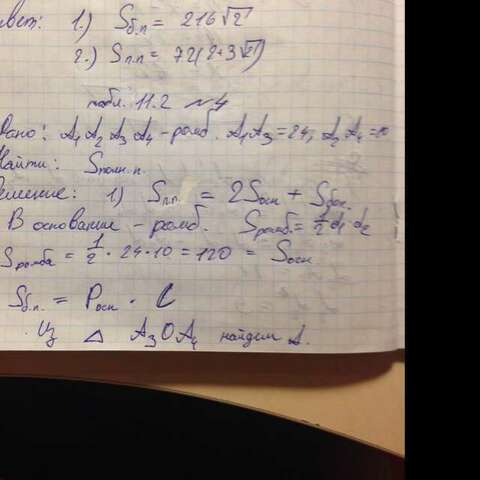 вет: 1.) Sб.п = 216√2
2.) Sп.п = 72(2+3√2)
табл. 11.2 №4
Дано: A₁ A₂ A₃ A₄ - ромб. A₁A₃ = 24, A₂A₄ = 10
Найти: Sполн.п.
ешение: 1) Sп.п. = 2Sосн + Sбок.
В основание - ромб. Sромб = 1/2 d₁·d₂
Sромба = 1/2 · 24 · 10 = 120 = Sосн
Sб.п. = Pосн · l
Из △ A₃OA₄ найдем A.